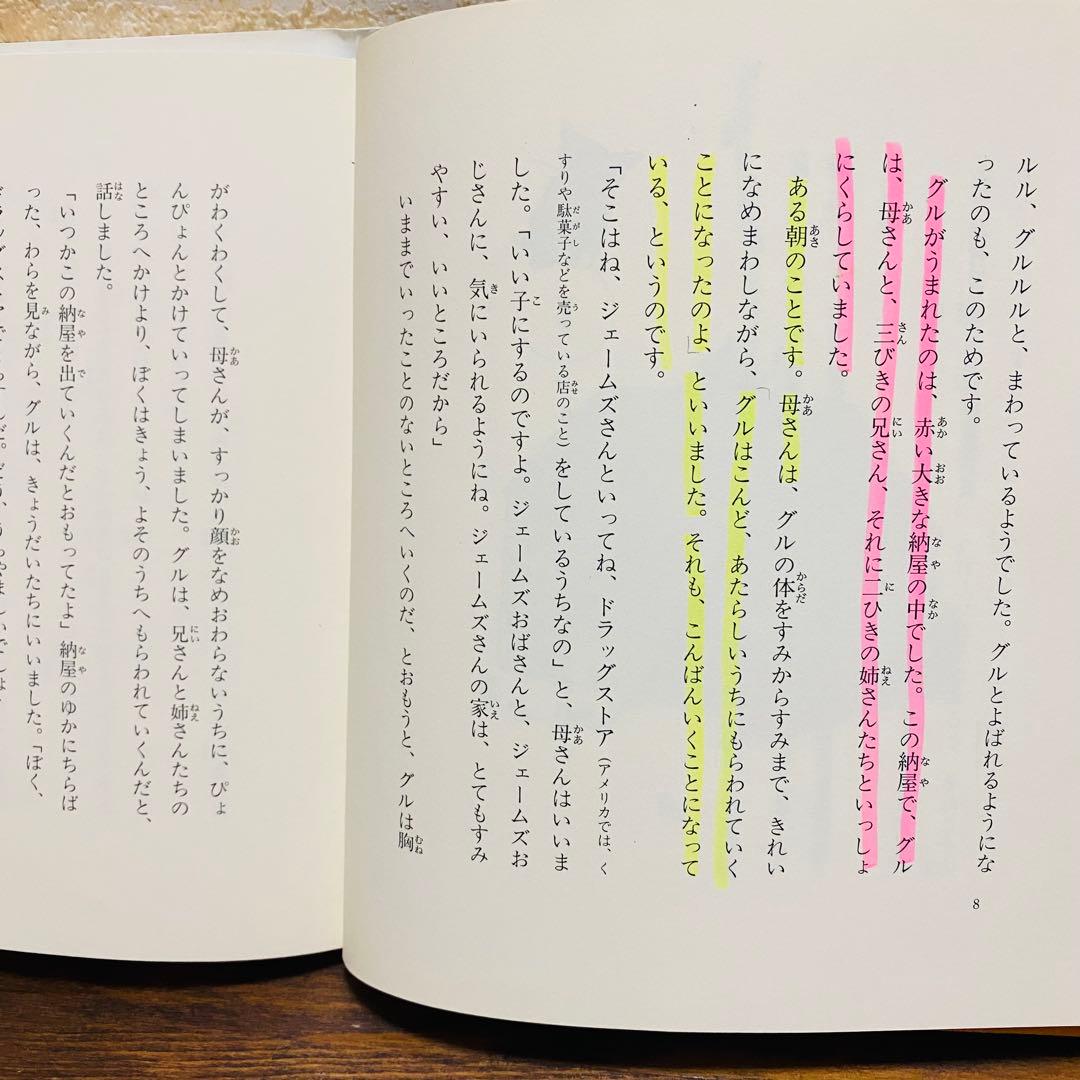 ルル、グルルルと、まわっているようでした。グルとよばれるようにな
ったのも、このためです。
グルがうまれたのは、赤い大きな納屋の中でした。この納屋で、グル
は、母さんと、三びきの兄さん、それに二ひきの姉さんたちといっしょ
にくらしていました。
ある朝のことです。母さんは、グルの体をすみからすみまで、きれい
になめまわしながら、「グルはこんど、あたらしいうちにもらわれていく
ことになったのよ」といいました。それも、こんばんいくことになって
いる、というのです。
「そこはね、ジェームズさんといってね、ドラッグストア（アメリカでは、く
すりや駄菓子などを売っている店のこと）をしているうちなの」と、母さんはいいま
した。「いい子にするのですよ。ジェームズおばさんと、ジェームズお
じさんに、気にいられるようにね。ジェームズさんの家は、とてもすみ
やすい、いいところだから」
いままでいったことのないところへいくのだ、とおもうと、グルは胸
8
がわくわくして、母さんが、すっかり顔をなめおわらないうちに、ぴょ
んぴょんとかけていってしまいました。グルは、兄さんと姉さんたちの
ところへかけより、ぼくはきょう、よそのうちへもらわれていくんだと、
話しました。
「いつかこの納屋を出ていくんだとおもってたよ」納屋のゆかにちらば
った、わらを見ながら、グルは、きょうだいたちにいいました。「ぼく、